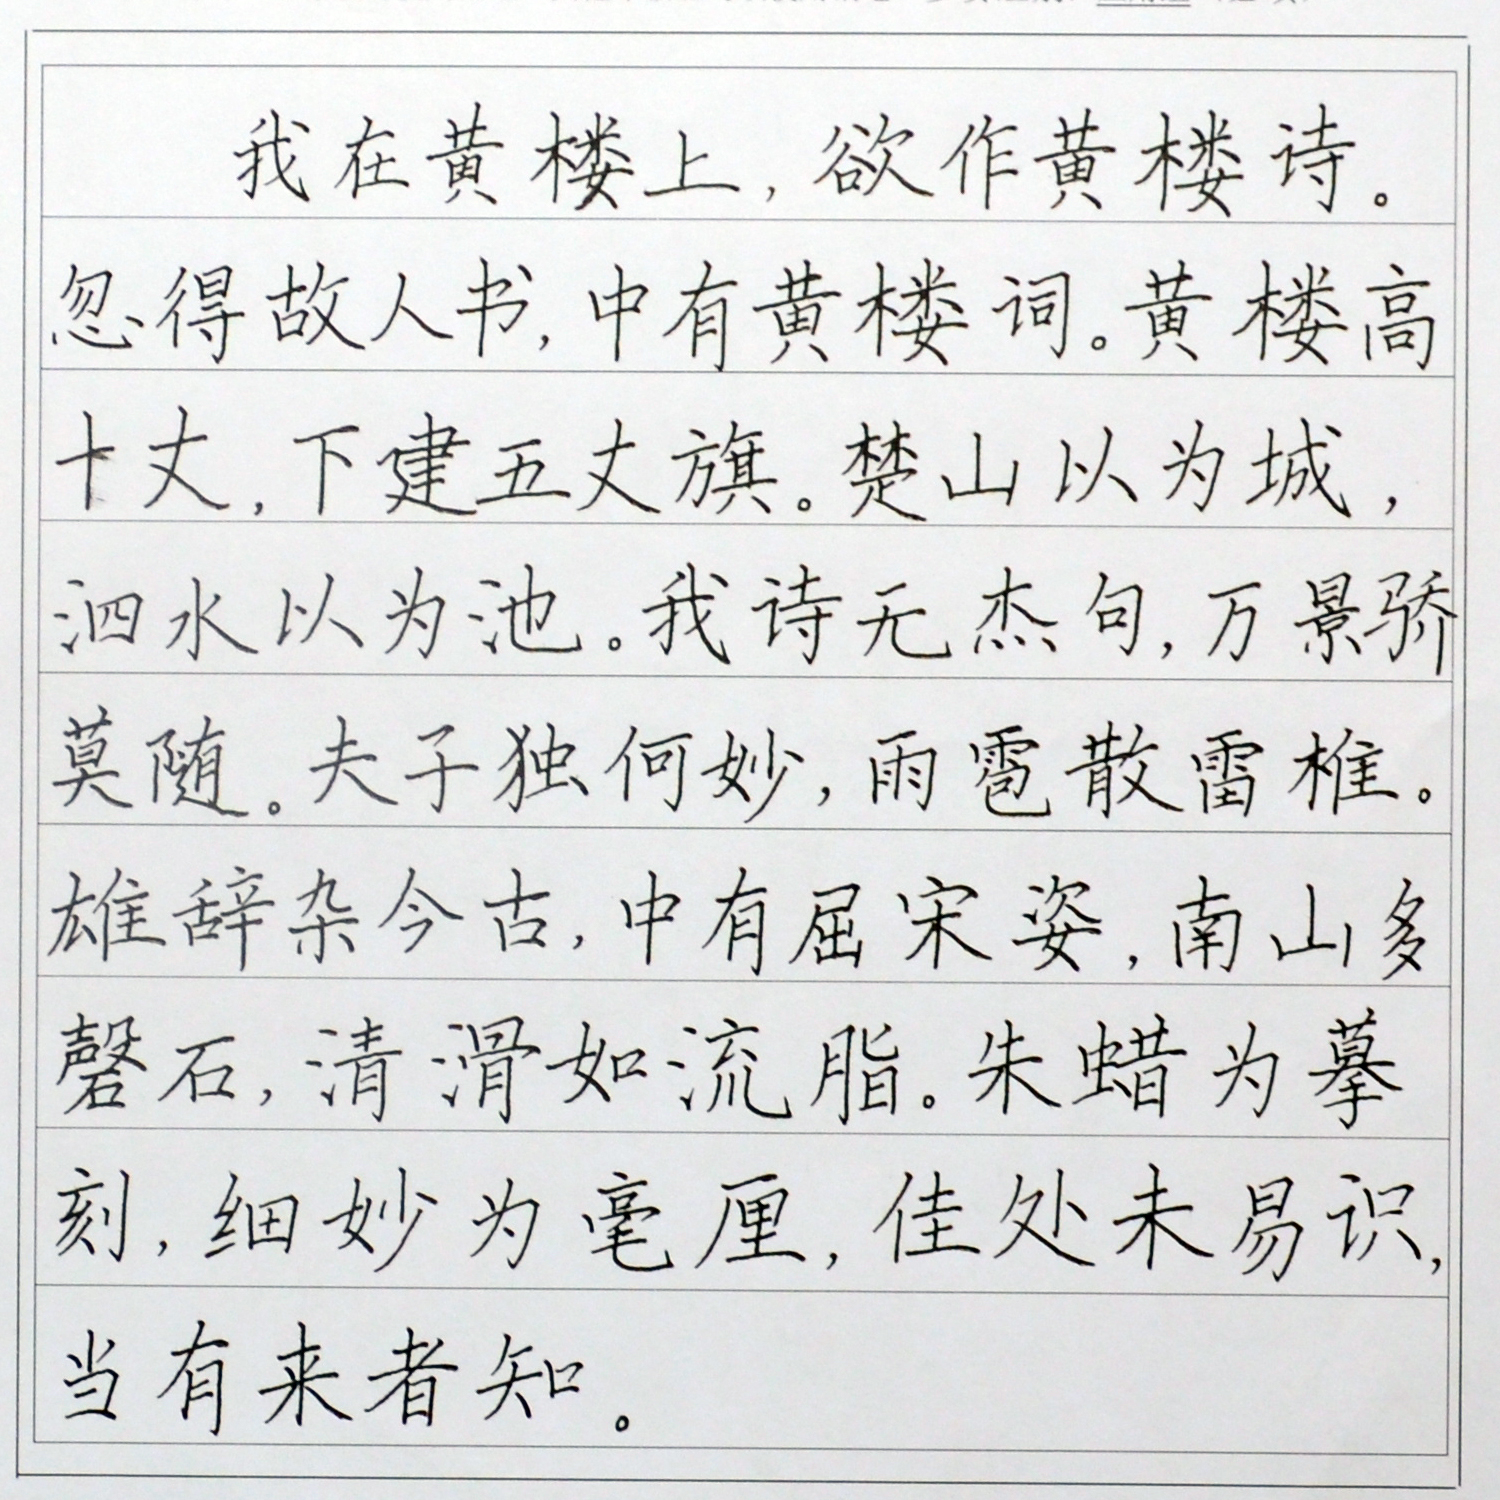 我在黄楼上，欲作黄楼诗。
忽得故人书，中有黄楼词。黄楼高
十丈，下建五丈旗。楚山以为城，
泗水以为池。我诗无杰句，万景骄
莫随。夫子独何妙，雨雹散雷椎。
雄辞杂今古，中有屈宋姿，南山多
磬石，清滑如流脂。朱蜡为摹
刻，细妙为毫厘，佳处未易识，
当有来者知。